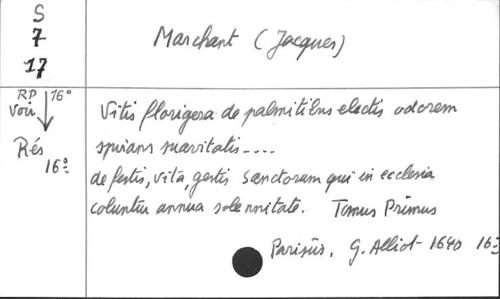 S
7
17
Marchant (Jacques)
RP 16°
voir
Rés
16°
Vitis florigera de palmitibus electis odorem
spirans suavitatis....
de festis, vita, gestis Sanctorum qui in ecclesia
coluntur annua solemnitate. Tomus Primus
Parisiis, G. Alliot 1640 16°